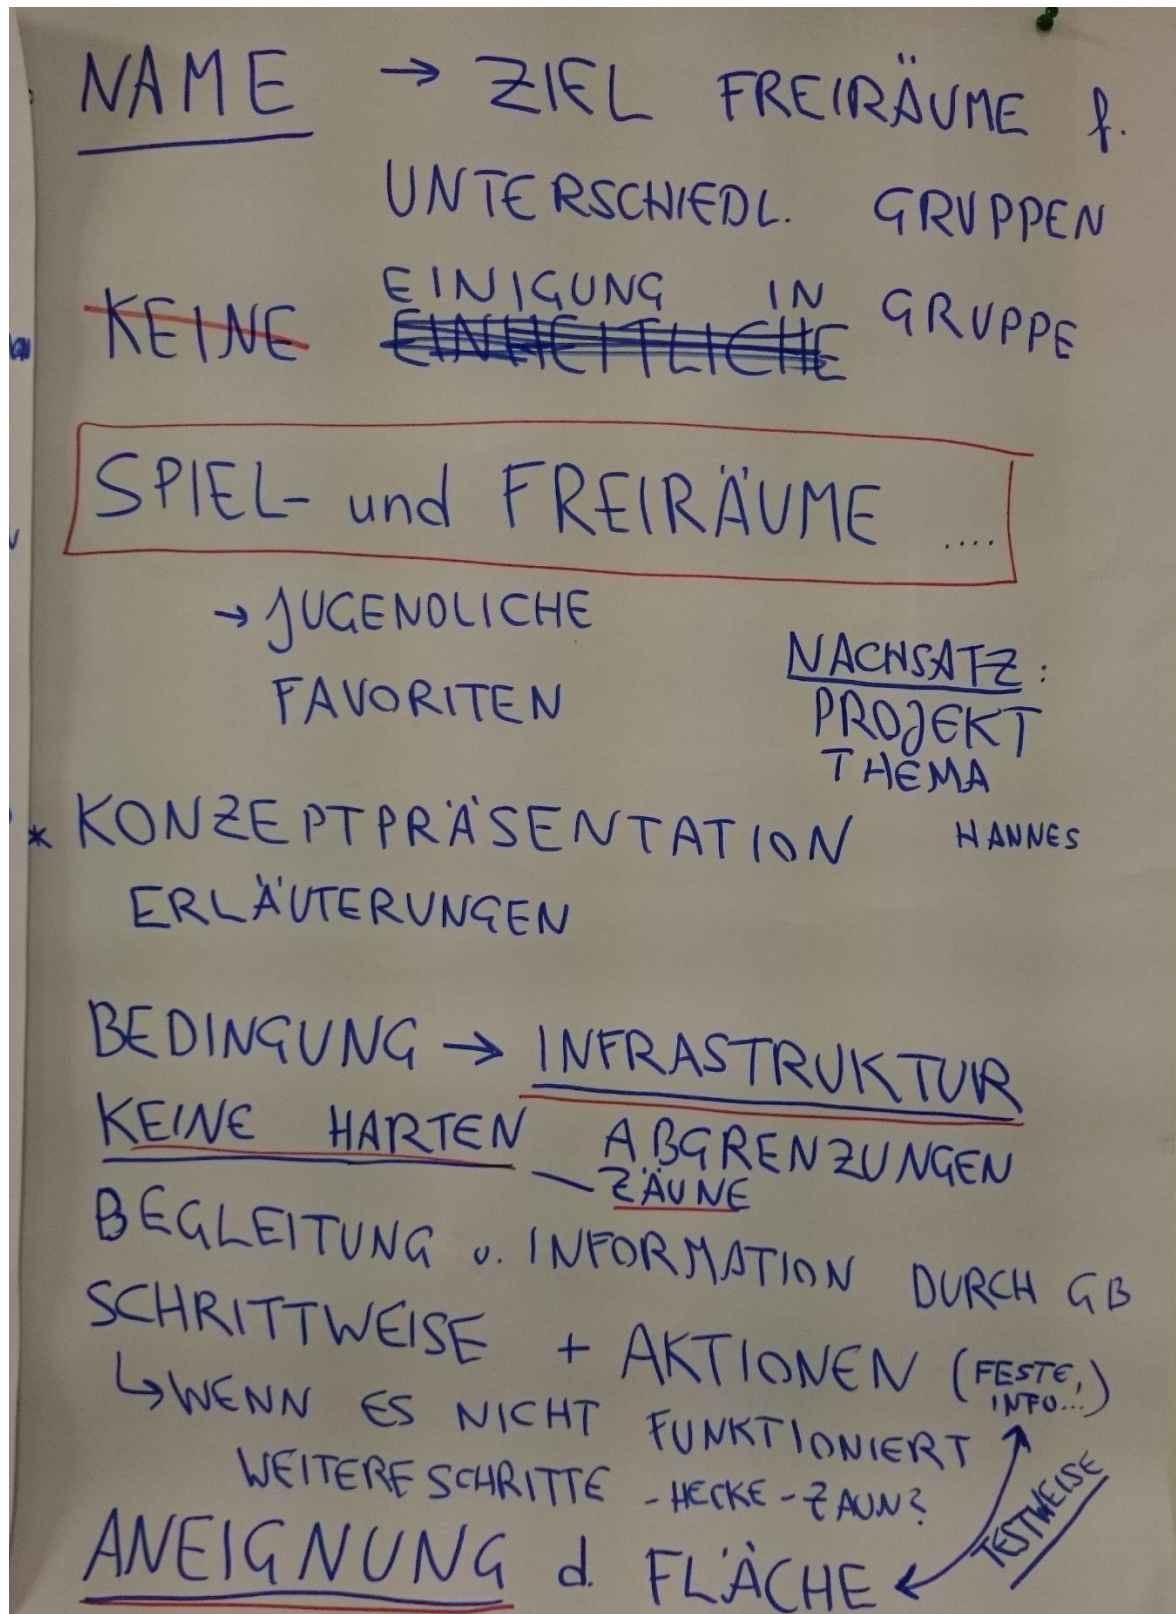 NAME → ZIEL FREIRÄUME f.
UNTERSCHIEDL. GRUPPEN
KEINE EINHEITLICHE EINIGUNG IN GRUPPE
SPIEL- und FREIRÄUME ....
→ JUGENDLICHE
FAVORITEN
NACHSATZ:
PROJEKT
THEMA
* KONZEPTPRÄSENTATION HANNES
ERLÄUTERUNGEN
BEDINGUNG → INFRASTRUKTUR
KEINE HARTEN ABGRENZUNGEN
– ZÄUNE
BEGLEITUNG u. INFORMATION DURCH GB
SCHRITTWEISE + AKTIONEN (FESTE,
INFO...)
↳ WENN ES NICHT FUNKTIONIERT
WEITERE SCHRITTE - HECKE - ZAUN?
TESTWEISE
ANEIGNUNG d. FLÄCHE